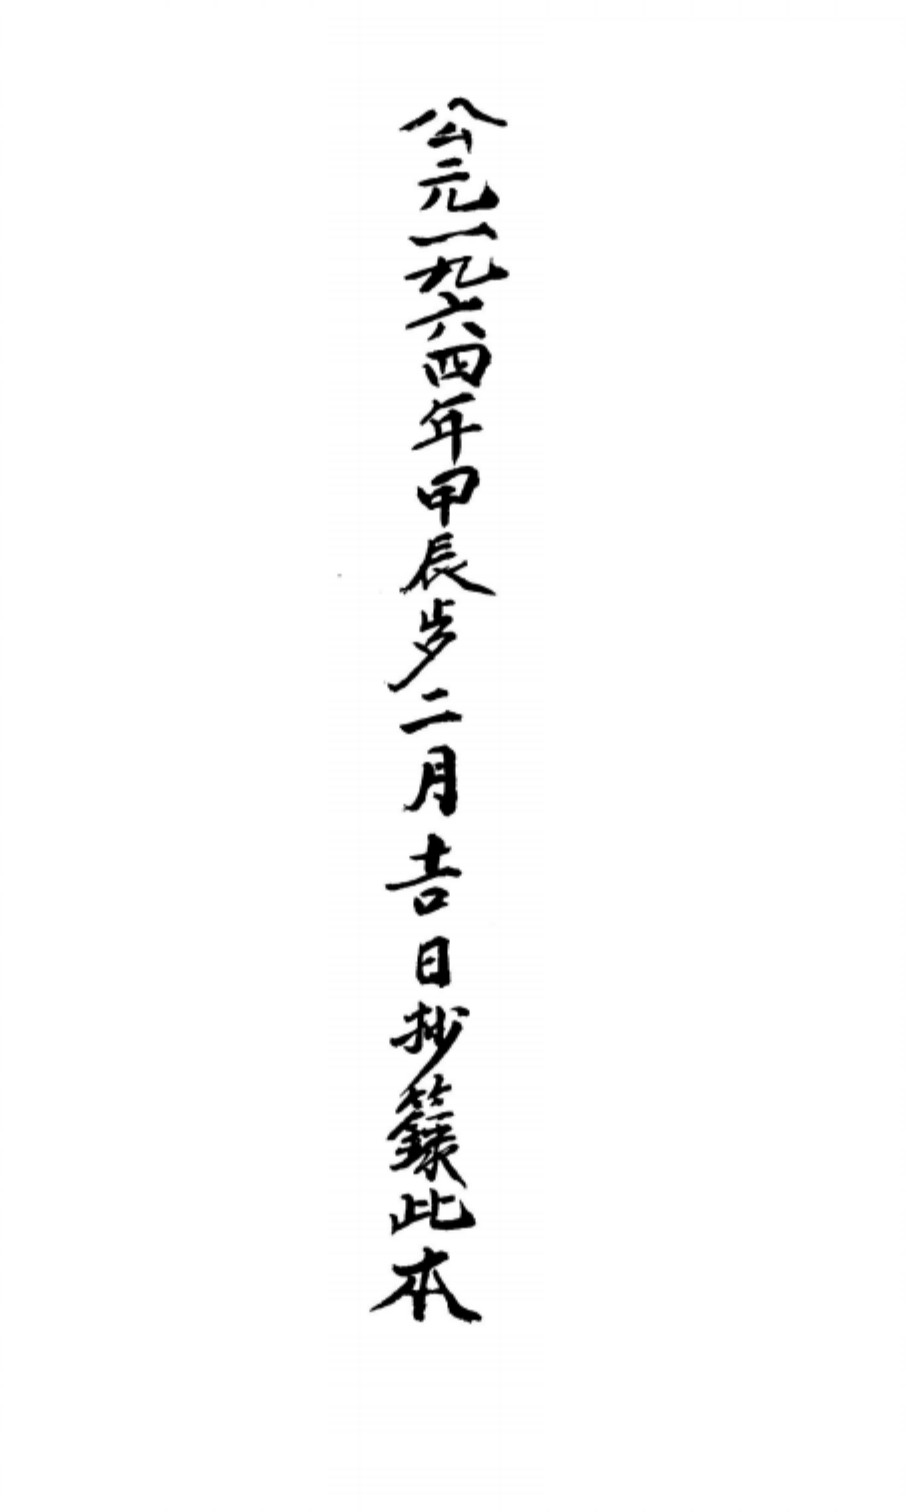 公元一九六四年甲辰岁二月吉日抄籙此本